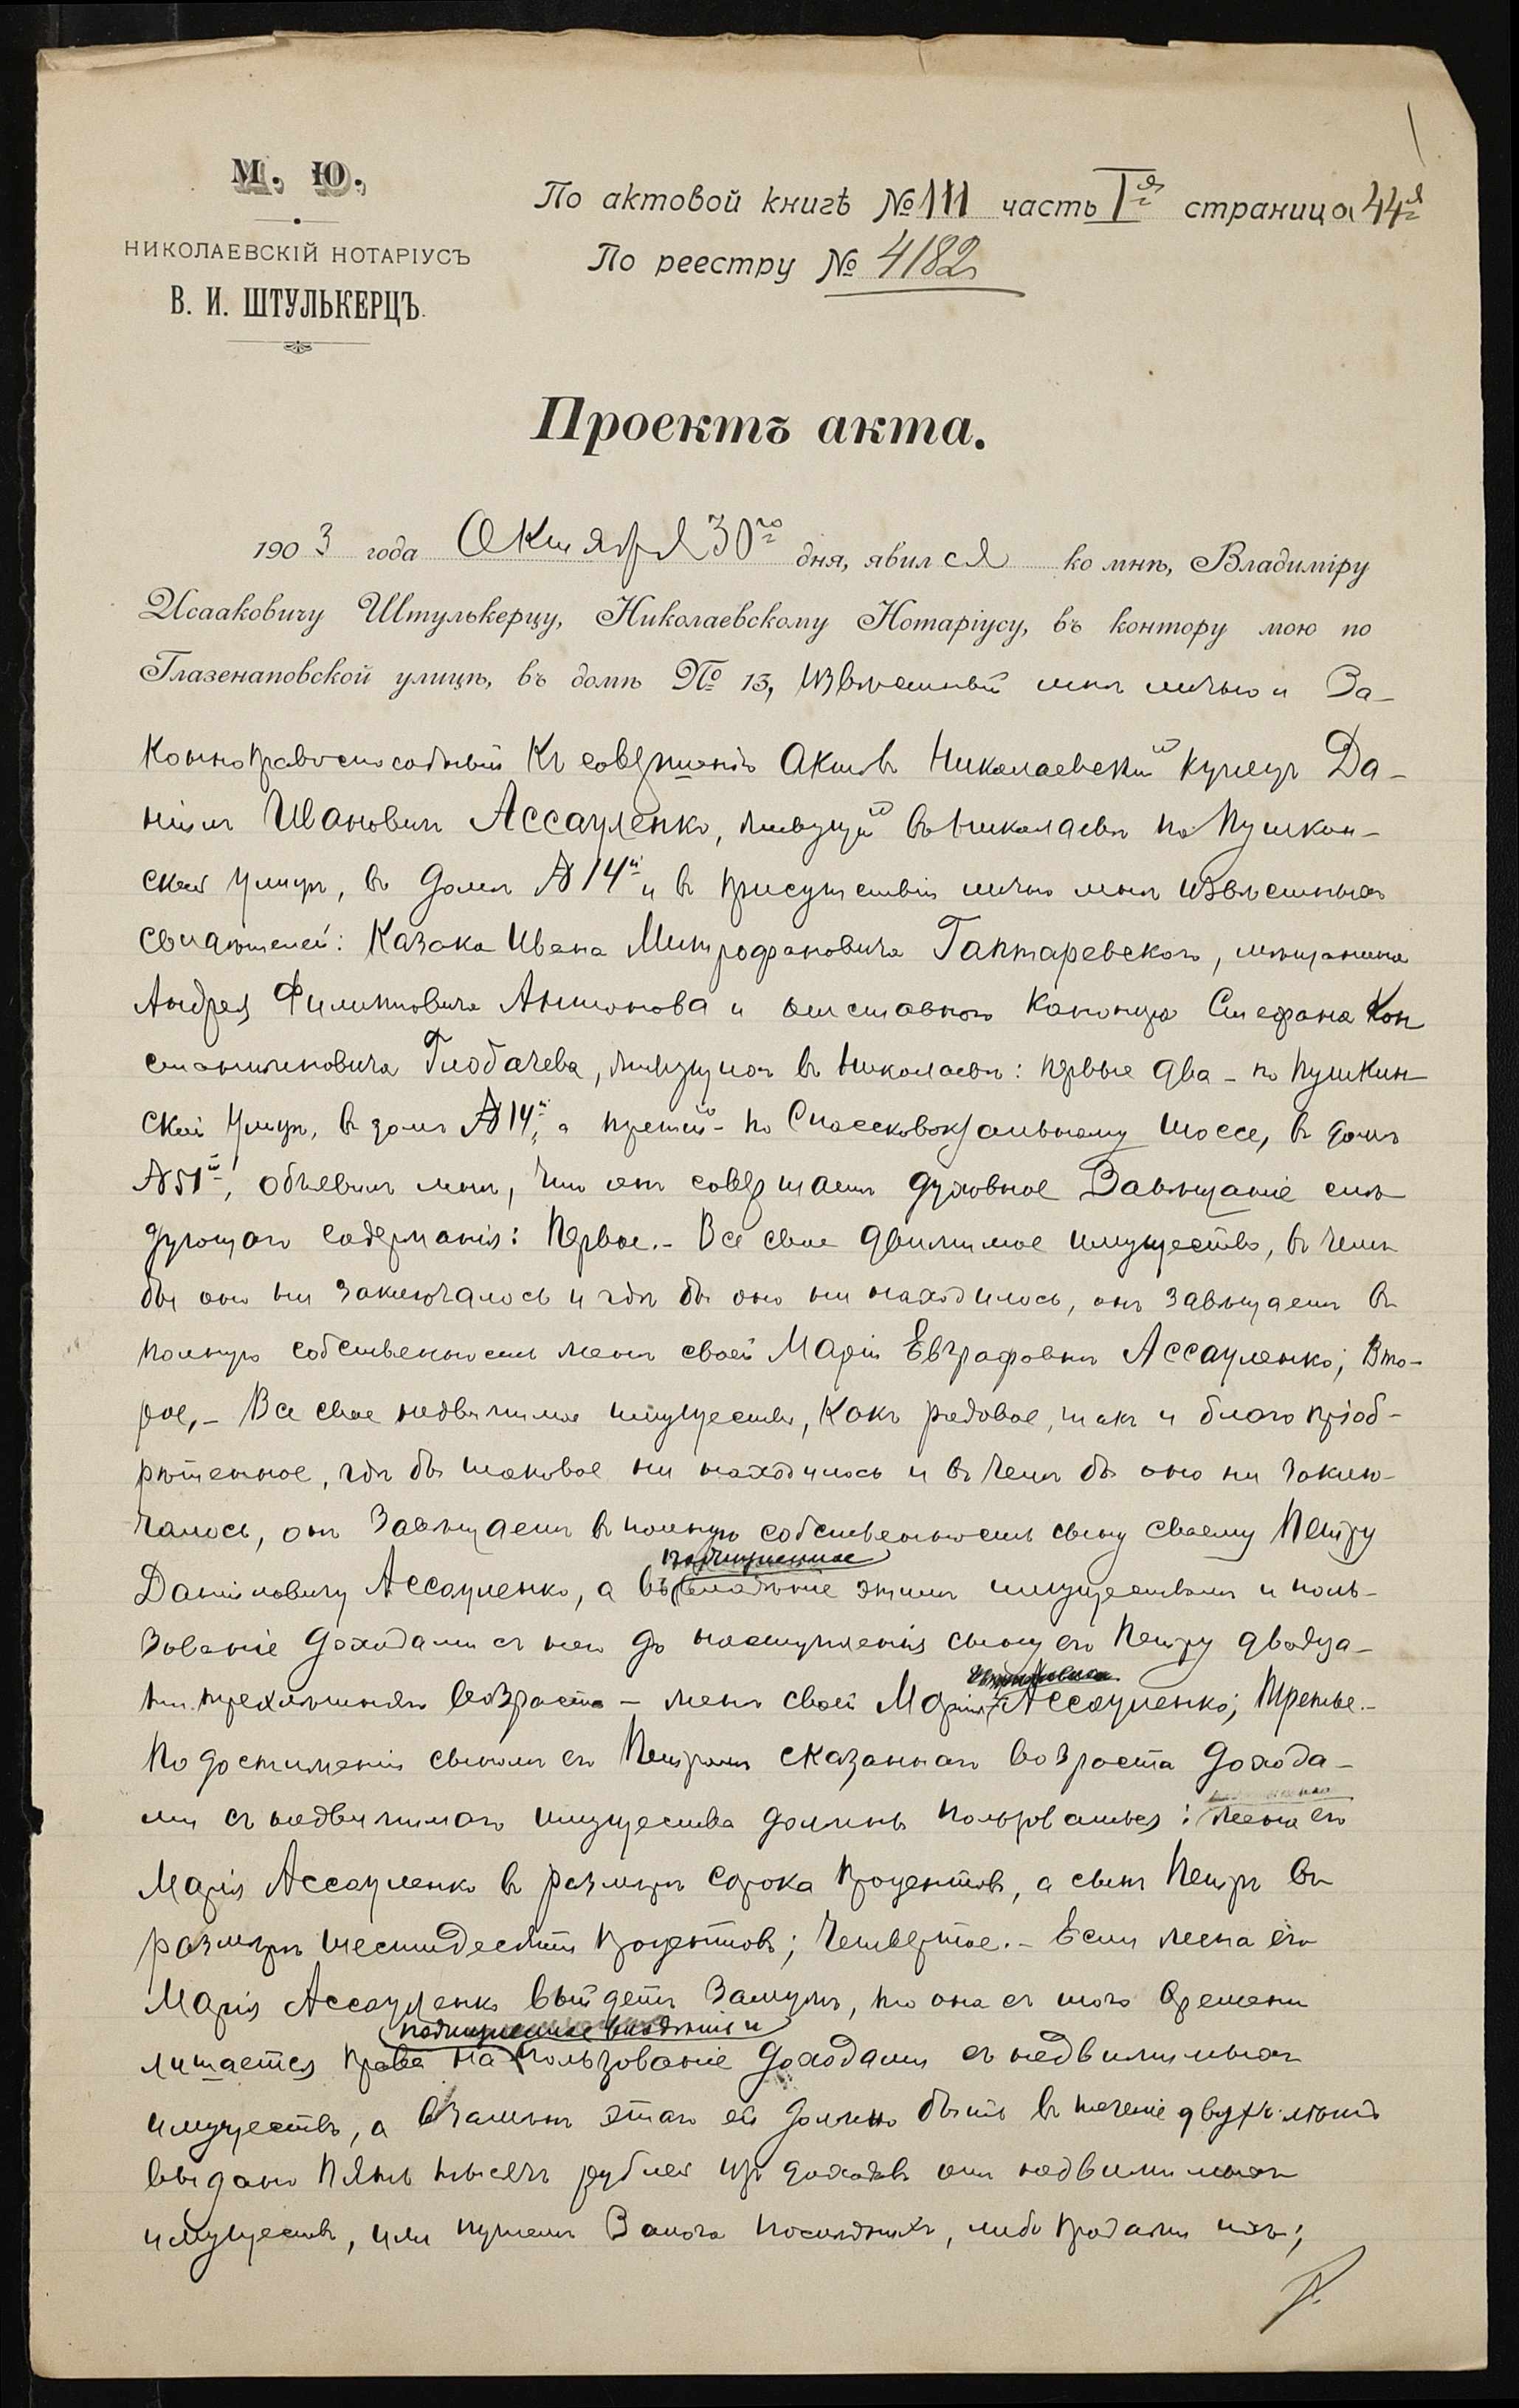 М. Ю.
НИКОЛАЕВСКІЙ НОТАРІУСЪ
В. И. ШТУЛЬКЕРЦЪ.
По актовой книгѣ №111 часть Iя страница 44я
По реестру № 4182
Проектъ акта.
1903 года Октября 30го дня, явился ко мнѣ, Владиміру
Исааковичу Штулькерцу, Николаевскому Нотаріусу, въ контору мою по
Глазенаповской улицѣ, въ домѣ № 13, извѣстный мнѣ лично и За-
коннoправоспособный къ совершенію актовъ Николаевскій купецъ Да-
ніилъ Ивановичъ Ассауленко, живущій въ Николаевѣ по Пушкин-
ской улицѣ, въ домѣ №14й и въ присутствіи лично мнѣ извѣстныхъ
свидѣтелей: Казака Ивана Митрофановича Гаптаревского, мѣщанина
Андрея Филипповича Антонова и отставного Стефана Кон
стантиновича Глобачева, живущихъ въ Николаевѣ: первые два – по Пушкин-
ской улицѣ, въ домѣ №14й, а третій – по Спасскомувокзальному шоссе, въ домѣ
№51й, объявилъ мнѣ, что онъ совершаетъ духовное Завѣщаніе слѣ-
дующаго содержанія: Первое.– Все свое движимое имущество, въ чемъ
бы оно ни заключалось и гдѣ бы оно ни находилось, онъ завѣщаетъ въ
полную собственность женѣ своей Маріи Евграфовнѣ Ассауленко; Вто-
рое,– Все свое недвижимое имущество, какъ родовое, такъ и благопріоб-
рѣтенное, гдѣ бы таковое ни находилось и въ чемъ бы оно ни заклю-
чалось, онъ Завѣщаетъ въ полную собственность сыну своему Петру
пожизненное
Даніиловичу Ассауленко, а въ владѣніе этимъ имуществомъ и поль-
зованіе доходами съ него до наступленія сыну его Петру двадца-
ти трехлѣтняго возраста – женѣ своей Маріи Ассауленко; Третье.–
По достиженіи сыномъ его Петромъ сказаннаго возраста дохода-
ми съ недвижимаго имущества должны пользоваться: жена его
Марія Ассауленко въ размѣрѣ сорока процентовъ, а сынъ Петръ въ
размѣрѣ шестидесяти процентовъ; Четвертое.– Если жена его
Марія Ассауленко выйдетъ замужъ, то она съ того времени
пожизненное владѣніе и
лишается права на пользованіе доходами съ недвижимыхъ
имуществъ, а взамѣнъ этого ей должно быть въ теченіе двухъ лѣтъ
выдано пять тысячъ рублей изъ доходовъ отъ недвижимыхъ
имуществъ, или путемъ залога послѣднихъ, либо продажи ихъ;